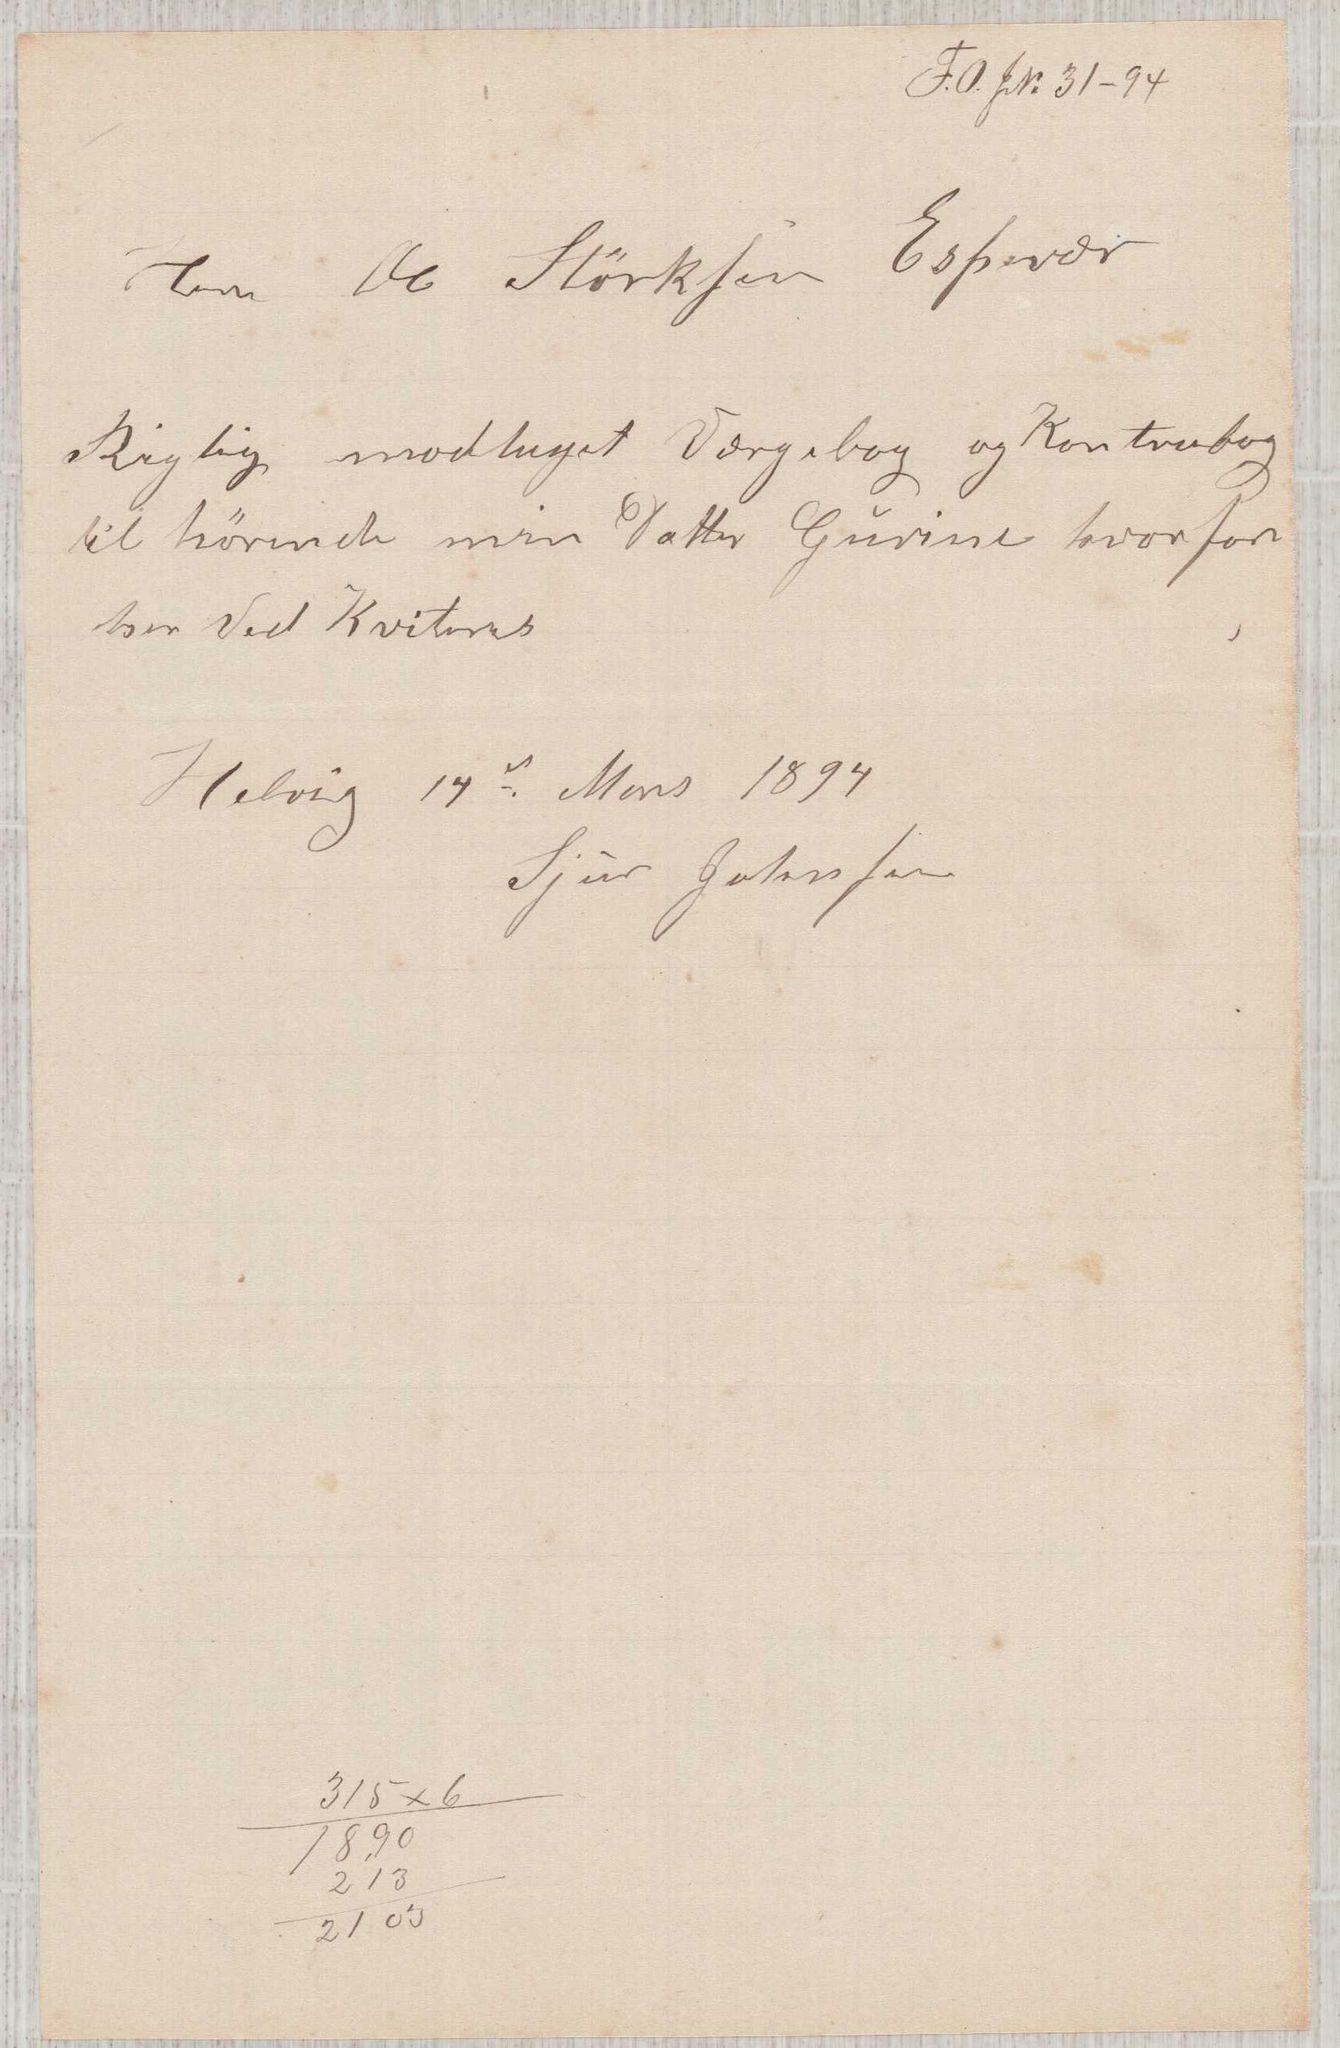 F.O. JN: 31-94
Herr Ole Störksen Espevær
Rigtig modtaget Værgebog og Kontrabog
til hörende min Datter Gŭrine hvorfor
her Ved Kviteres
Helvig 14 de Mars 1894
Sjŭr Johnsen
315 x 6
18,90
2 13
21 03